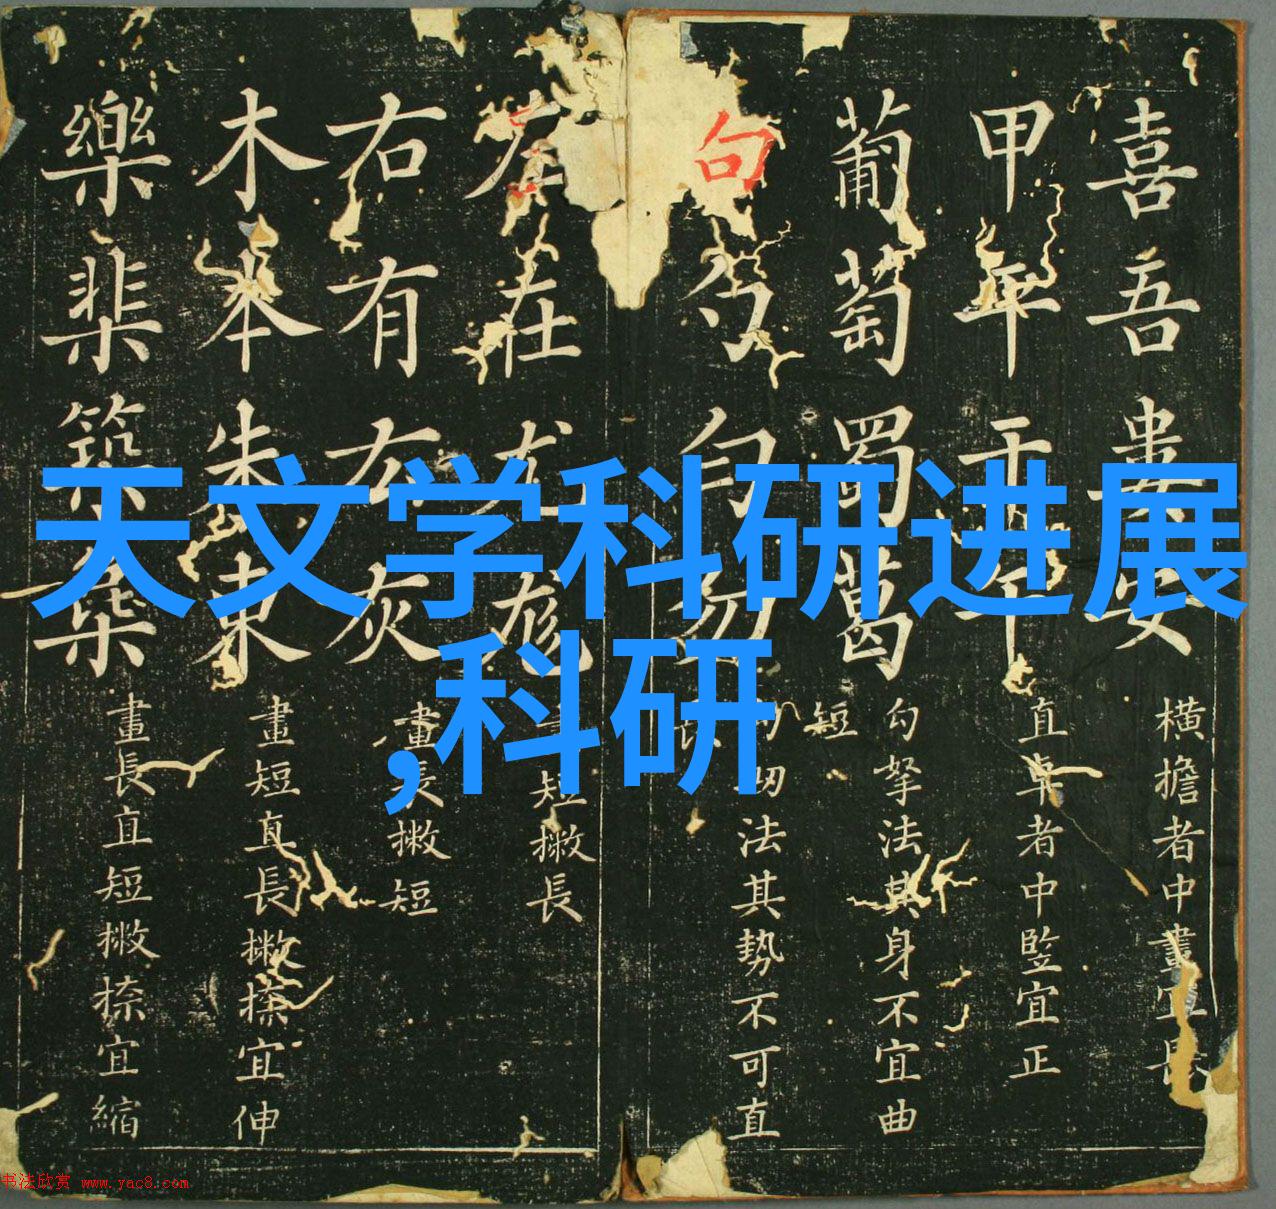 天文学科研进展
,科研
喜吾
横擔者中畫宜長
甲平干午
直卓者中竪宜正
葡萄蜀葛
勾拏法其身不宜曲
短
句勹勿
法其勢不可直
左在尤尨
短撇長
右有灰
畫長撇短
木本朱東
畫短直長撇捺宜伸
樂棐築
畫長直短撇捺宜縮
书法欣赏 www.yac8.com